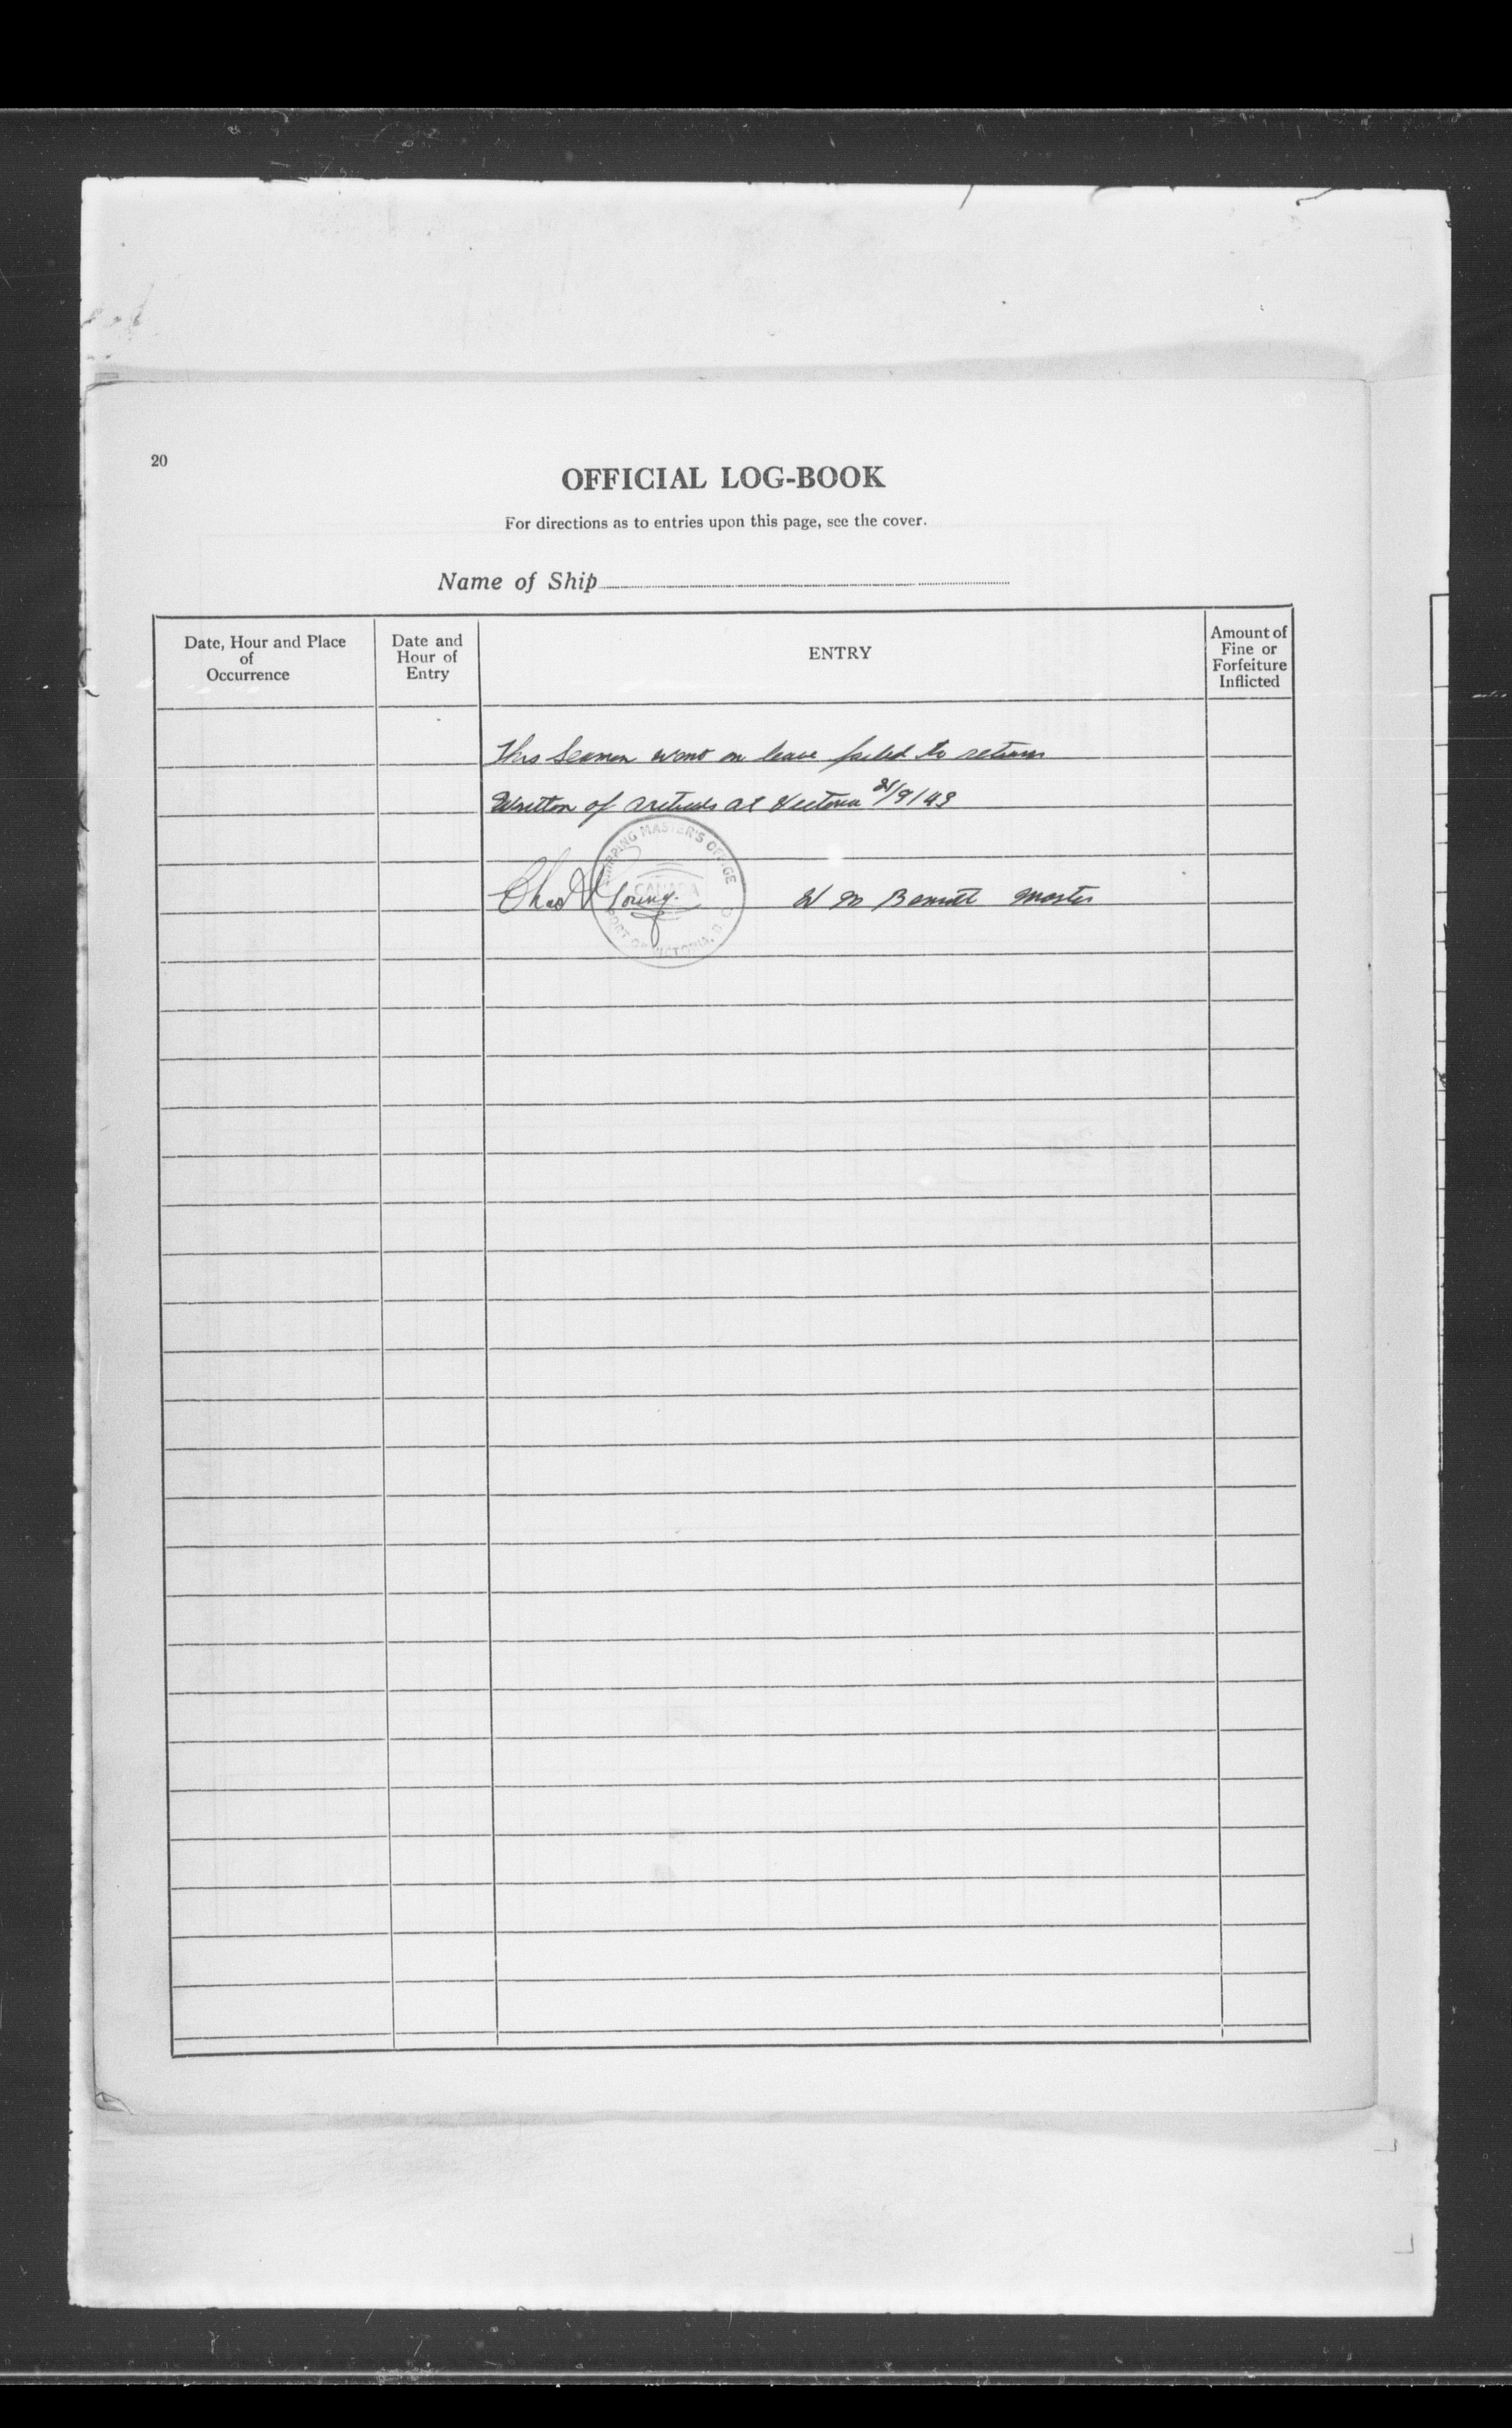 20
OFFICIAL LOG-BOOK
For directions as to entries upon this page, see the cover.
Name of Ship
Date, Hour and Place
of
Occurrence
Date and
Hour of
Entry
ENTRY
Amount of
Fine or
Forfeiture
Inflicted
This Seaman went on leave failed to return
Written of articles at Victoria /9/43
SHIPPING MASTER'S OFFICE
CANADA
PORT OF VICTORIA, B.C.
Chas Young. W M Bennett Master